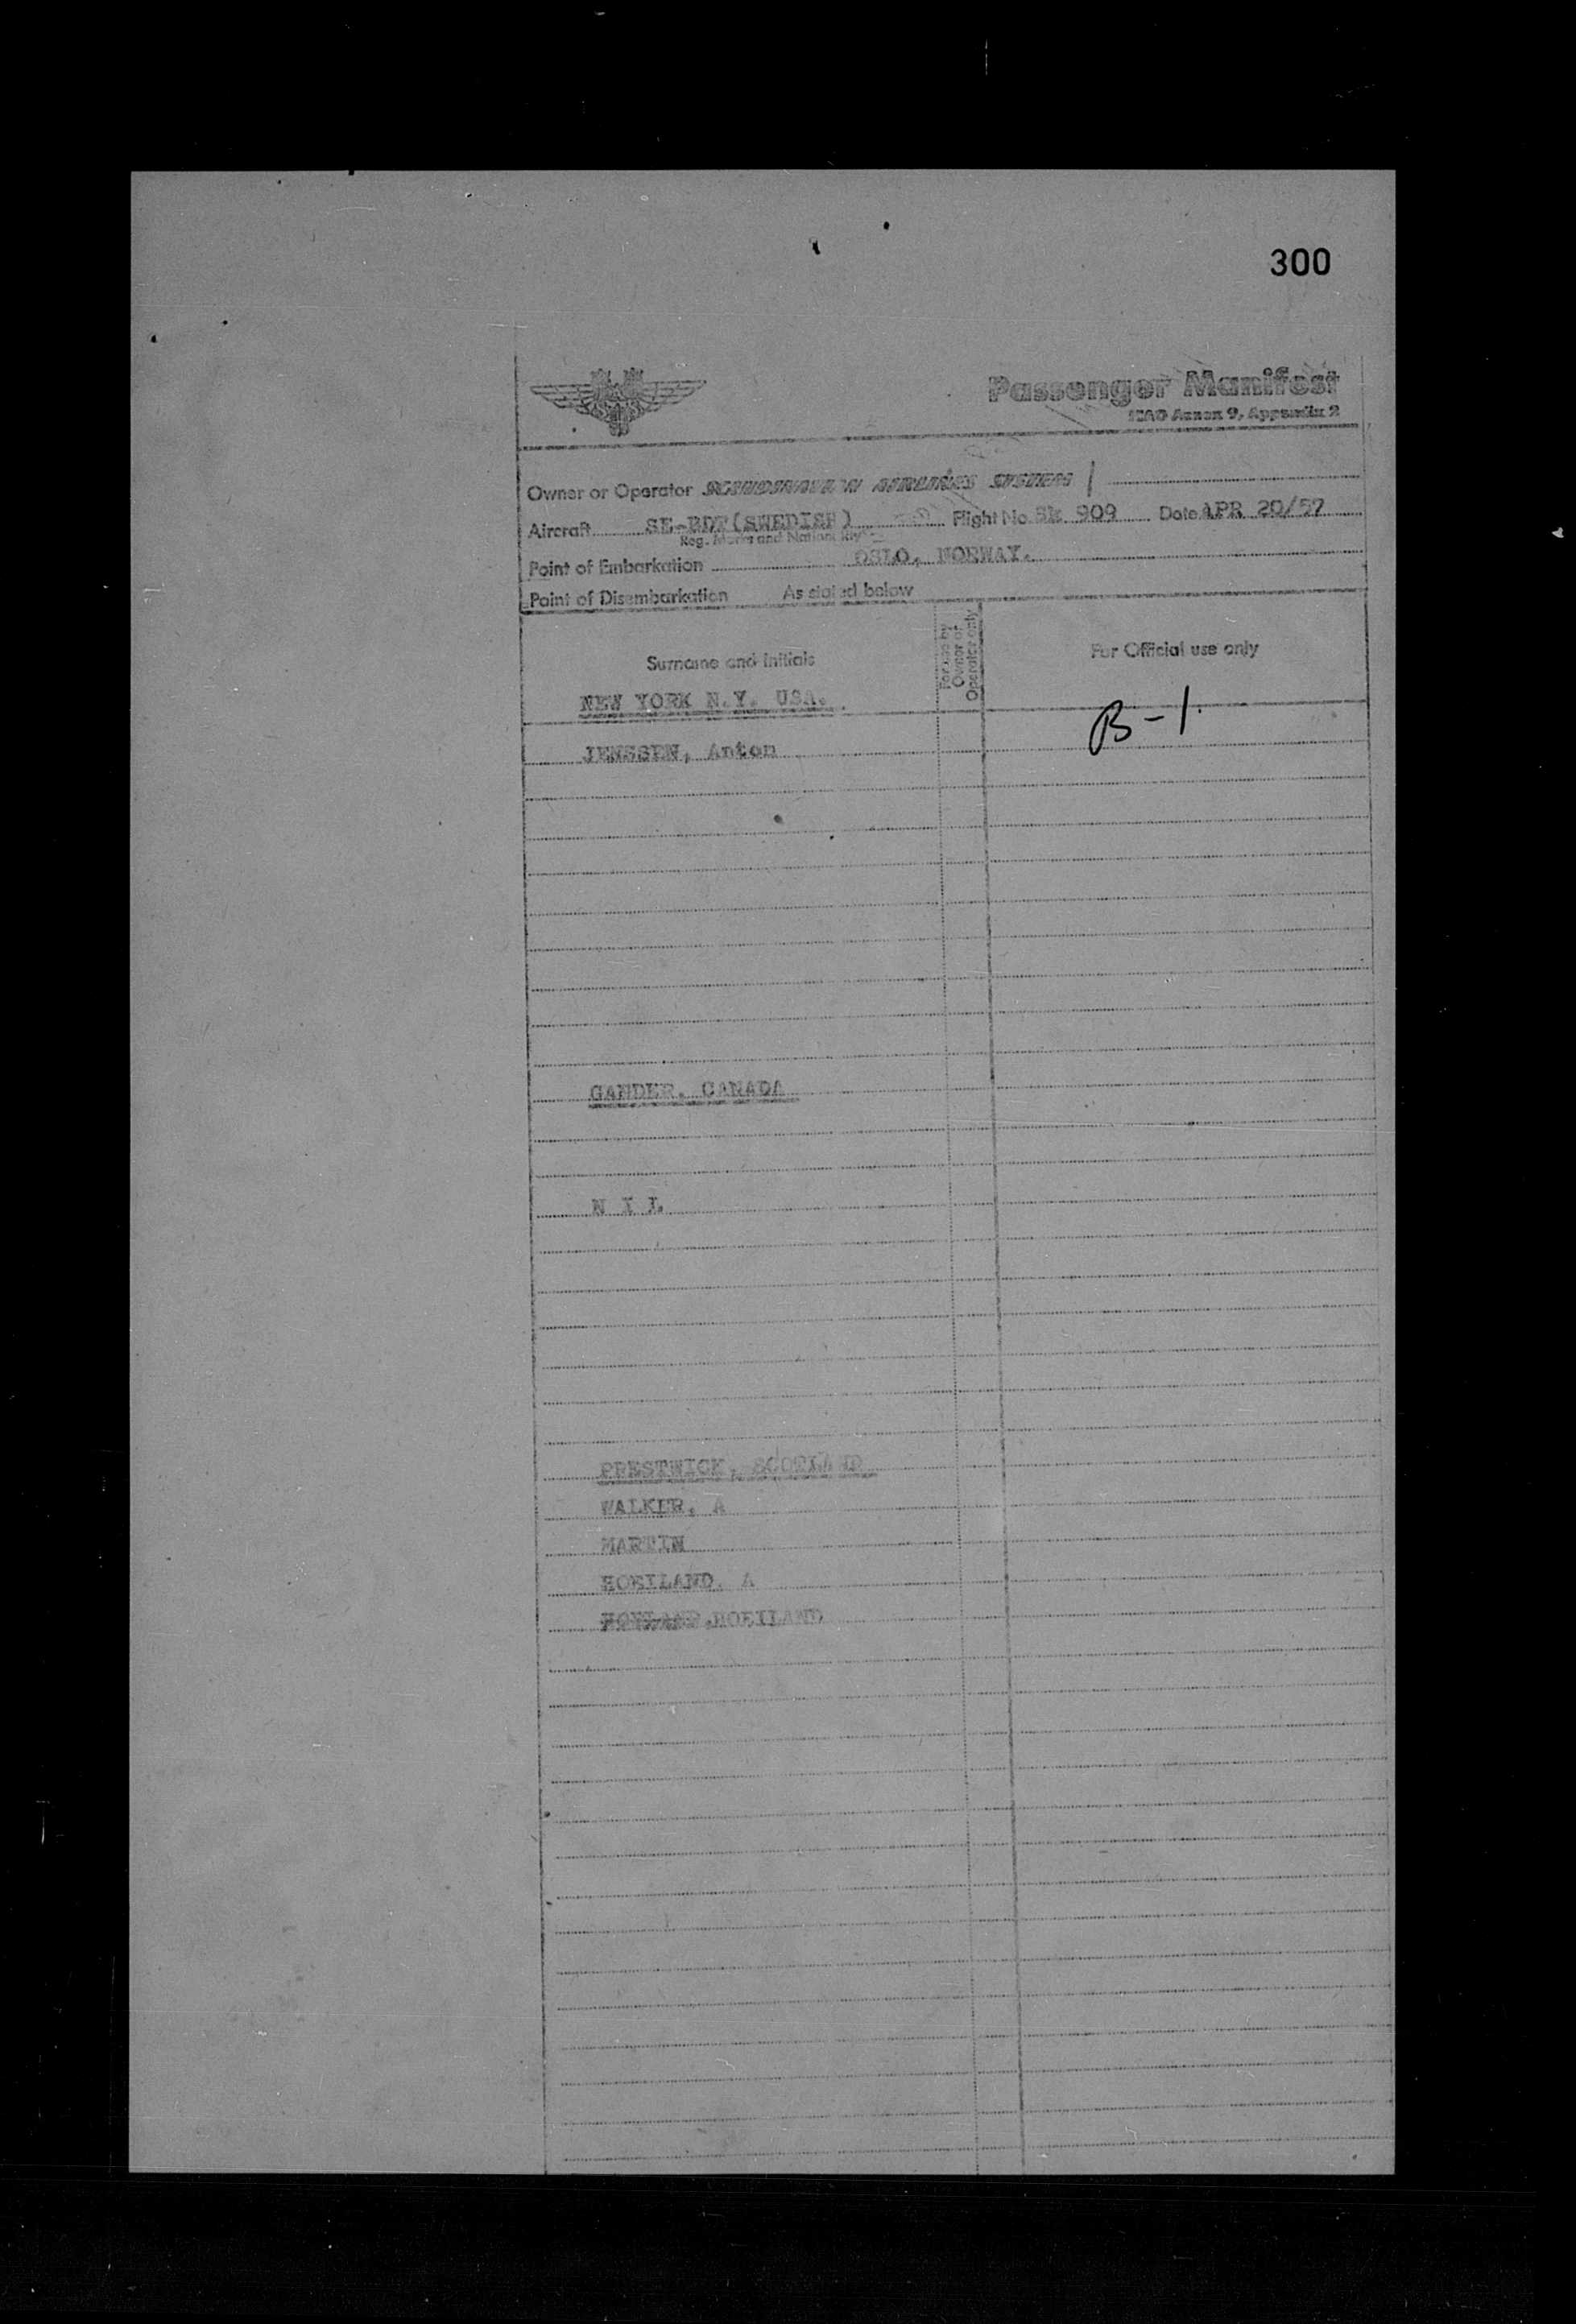 300
Passenger Manifest
ICAO Annex 9, Appendix 2
Owner or Operator SCANDINAVIAN AIRLINES SYSTEM
Aircraft (SWEDISH) Flight No. SK 909 Date APR 20/57
Reg. Marks and Nationality
Point of Embarkation OSLO, NORWAY.
Point of Disembarkation As stated below
Surname and Initials
For use by Owner or Operator only
For Official use only
NEW YORK N.Y. USA.
B-1.
JENSSEN, Anton
GANDER, CANADA
N I L
PRESTWICK, SCOTLAND
WALKER, A
MARTIN
HOEILAND, A
HOEILAND